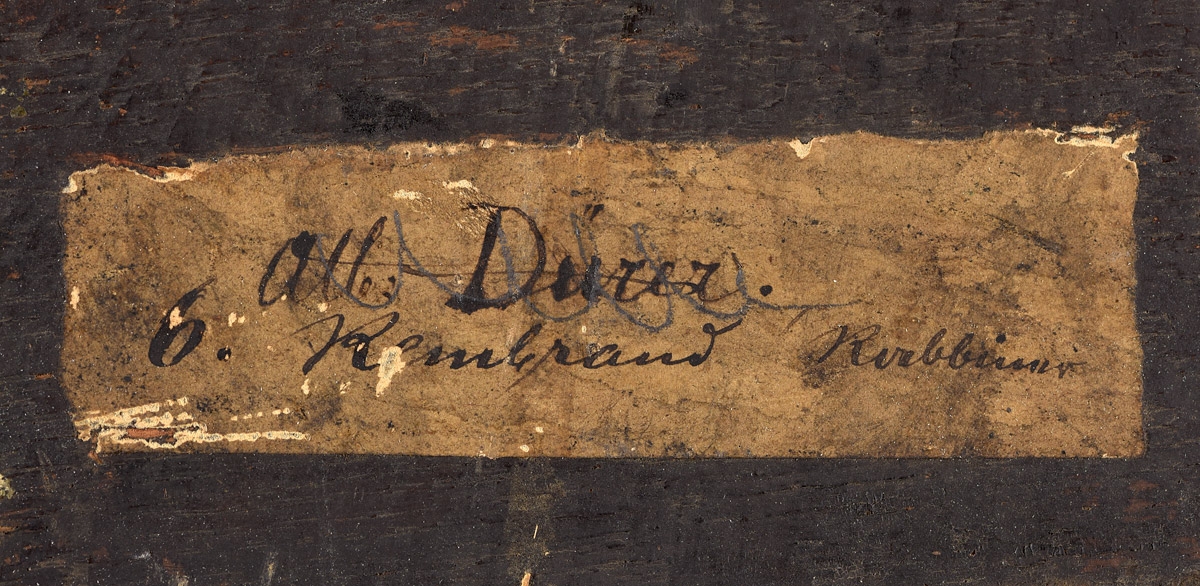 Alb: Dürer.
6. Rembrand